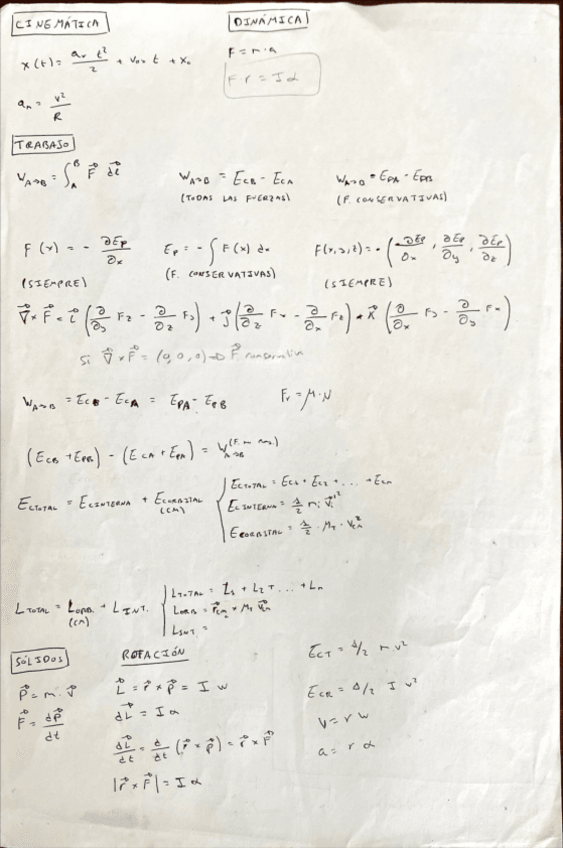 CINEMÁTICA
DINÁMICA
x(t) = a₀ t²/2 + v₀ₓ t + x₀
F = m · a
F r = I α
aₙ = v²/R
TRABAJO
W_A→B = ∫_A^B F⃗ dl⃗
W_A→B = E_CB - E_CA
(TODAS LAS FUERZAS)
W_A→B = E_PA - E_PB
(F. CONSERVATIVAS)
F(x) = - ∂Ep/∂x
(SIEMPRE)
Ep = - ∫ F(x) dx
(F. CONSERVATIVAS)
F(x,y,z) = - (∂Ep/∂x, ∂Ep/∂y, ∂Ep/∂z)
(SIEMPRE)
∇⃗ × F⃗ = i⃗ (∂/∂y Fz - ∂/∂z Fy) + j⃗ (∂/∂z Fx - ∂/∂x Fz) + k⃗ (∂/∂x Fy - ∂/∂y Fx)
Si ∇⃗ × F⃗ = (0,0,0) → F⃗ conservativa
W_A→B = E_CB - E_CA = E_PA - E_PB
Fr = μ · N
(E_CB + E_PB) - (E_CA + E_PA) = W_A→B
E_CTOTAL = E_CINTERNA + E_CORBITAL
(CM)
E_CTOTAL = E_C1 + E_C2 + ... + E_Cn
E_CINTERNA = 1/2 mᵢ v⃗ᵢ'²
E_CORBITAL = 1/2 · M_T · V_CM²
L_TOTAL = L_ORB. + L_INT.
(CM)
L_TOTAL = L₁ + L₂ + ... + Lₙ
L_ORB = r⃗_CM × M_T v⃗_CM
L_INT. =
SÓLIDOS
ROTACIÓN
P⃗ = m · v⃗
F⃗ = dP⃗/dt
L⃗ = r⃗ × p⃗ = I w
dL⃗ = I α
dL⃗/dt = d/dt (r⃗ × p⃗) = r⃗ × F⃗
|r⃗ × F⃗| = I α
E_CT = 1/2 m v²
E_CR = 1/2 I v²
v = r w
a = r α